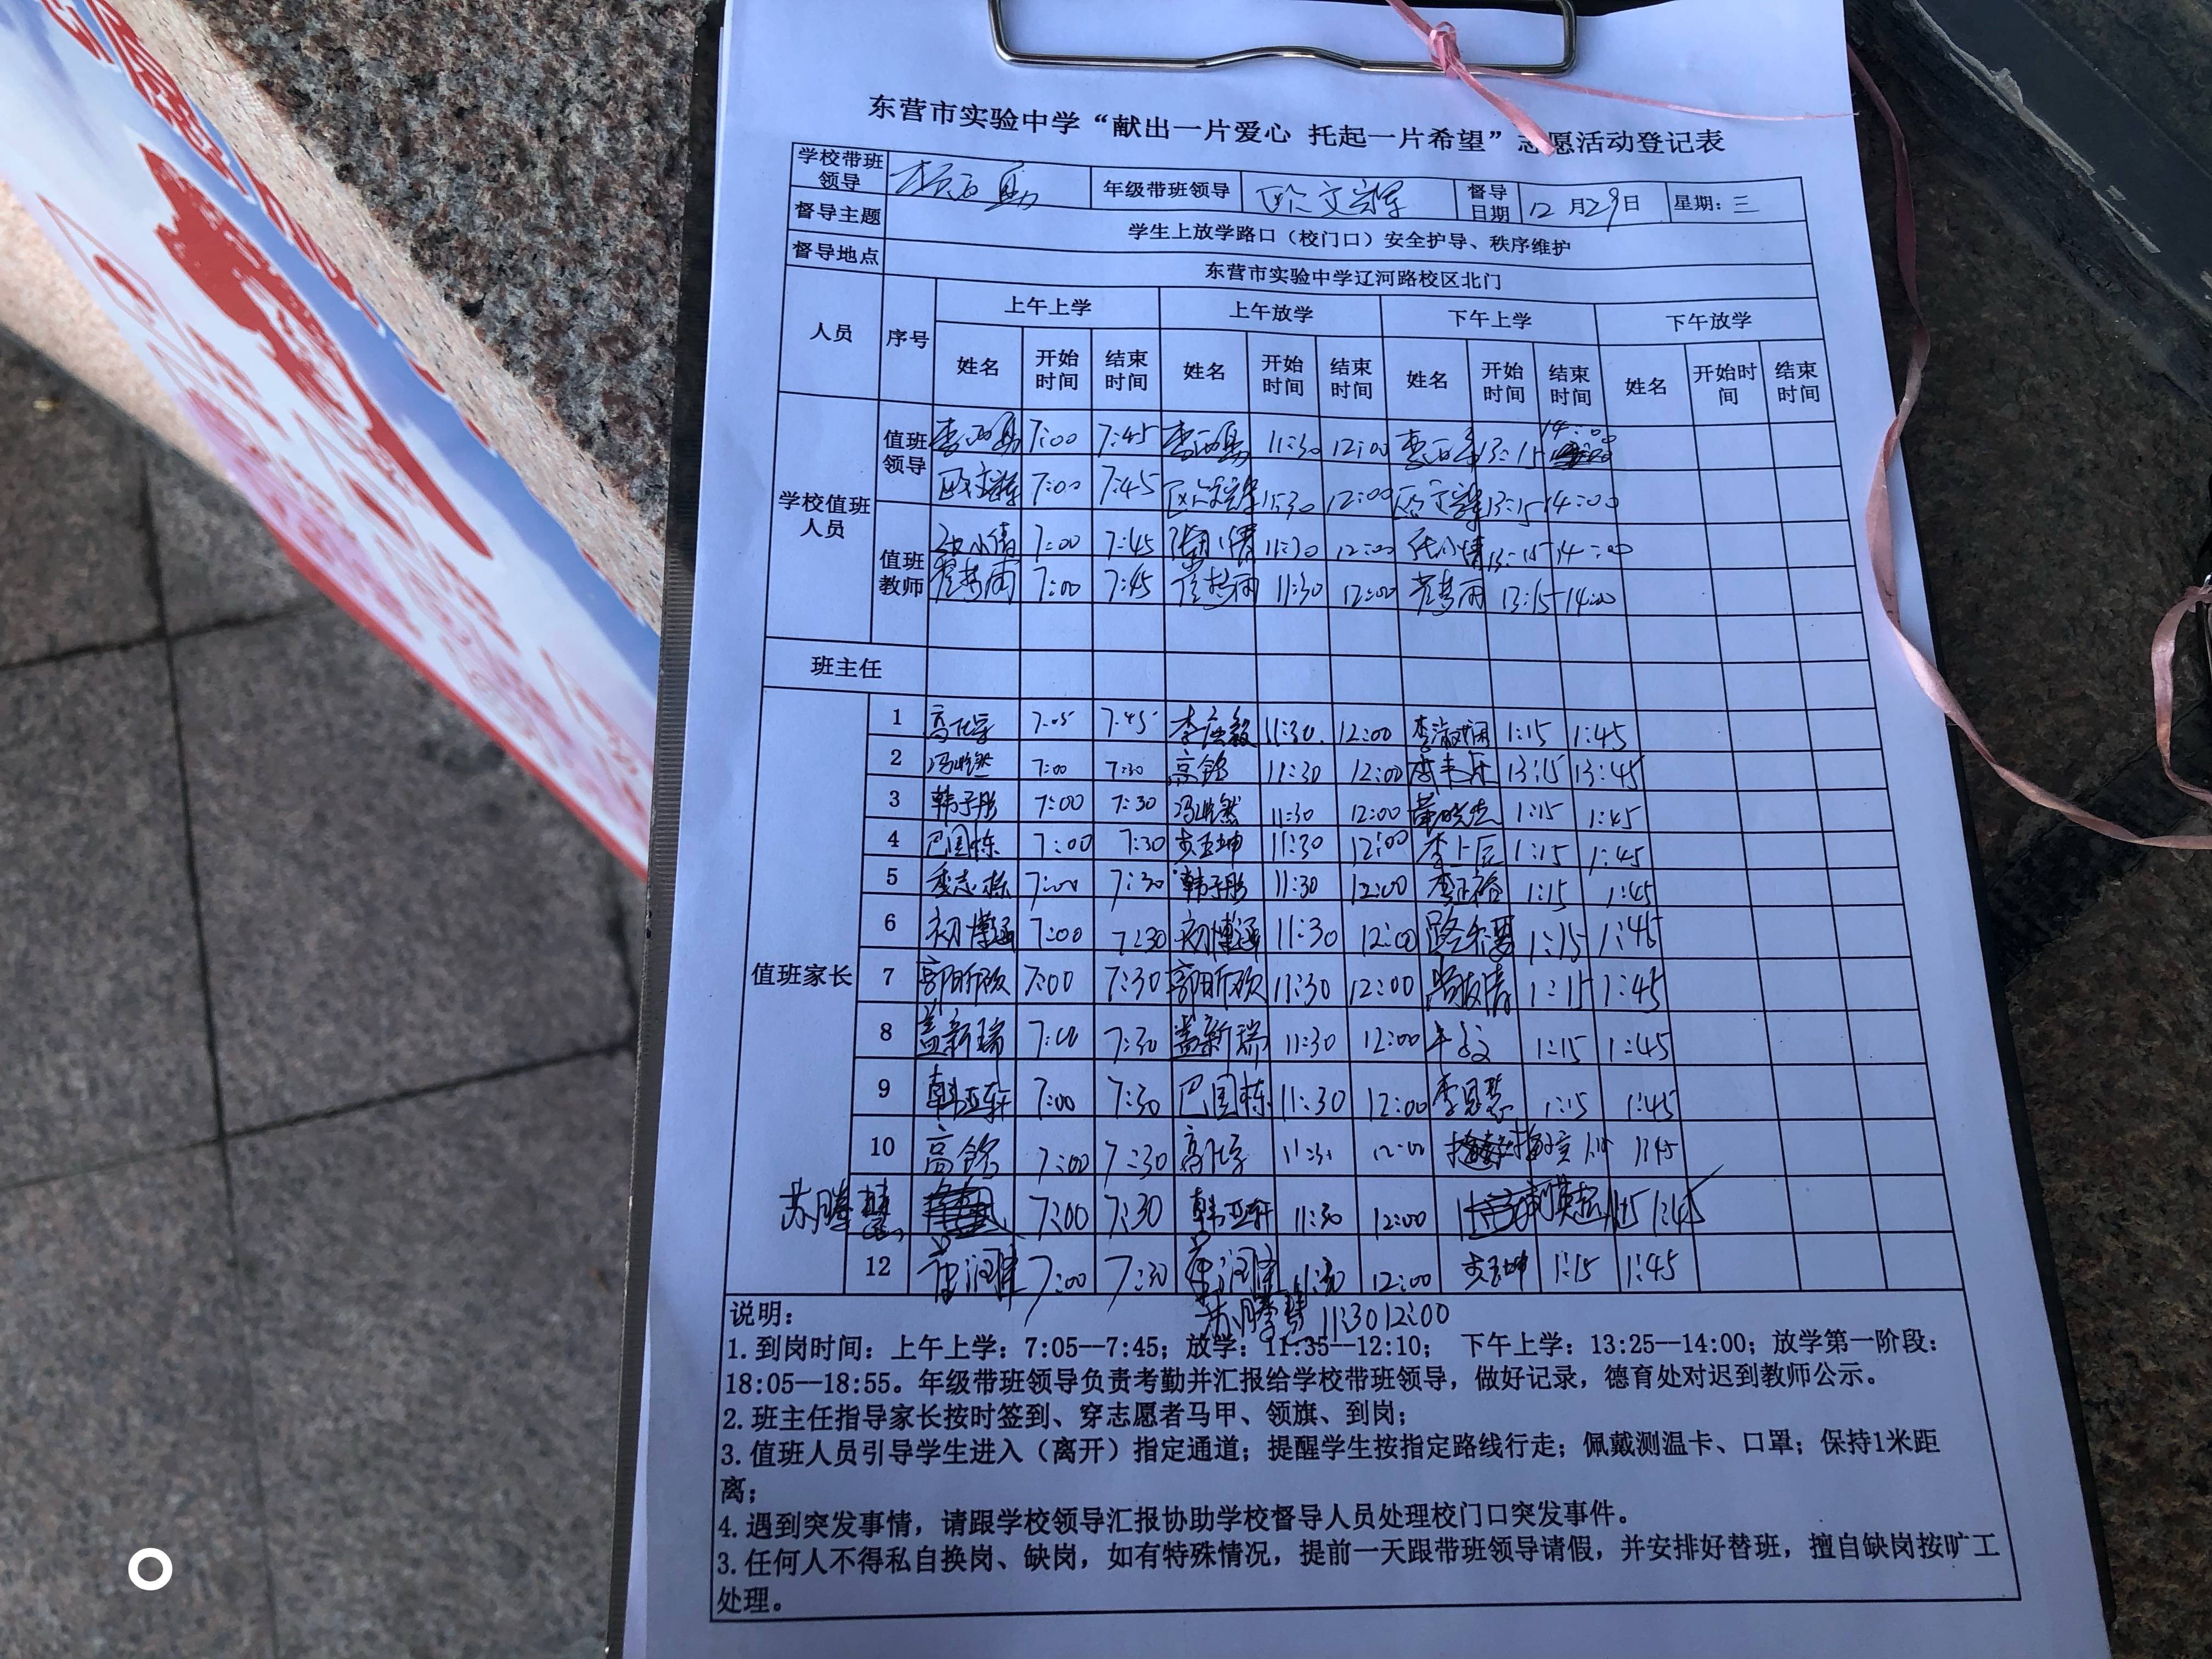 东营市实验中学“献出一片爱心 托起一片希望”志愿活动登记表
学校带班领导 年级带班领导 欧文辉 督导日期 12月29日 星期：三
督导主题 学生上放学路口（校门口）安全护导、秩序维护
督导地点 东营市实验中学辽河路校区北门
人员 序号 上午上学 上午放学 下午上学 下午放学
姓名 开始时间 结束时间 姓名 开始时间 结束时间 姓名 开始时间 结束时间 姓名 开始时间 结束时间
学校值班人员
值班领导 7:00 7:45 11:30 12:00 13:15 14:00
欧文辉 7:00 7:45 欧文辉 11:30 12:00 欧文辉 13:15 14:00
值班教师 7:00 7:45 11:30 12:00 13:15 14:00
7:00 7:45 11:30 12:00 13:15 14:00
班主任
值班家长
1 7:05 7:45 11:30 12:00 1:15 1:45
2 冯皓然 7:00 7:30 高铭 11:30 12:00 13:15 13:45
3 韩子彤 7:00 7:30 冯皓然 11:30 12:00 董晓杰 1:15 1:45
4 巴国栋 7:00 7:30 11:30 12:00 1:15 1:45
5 7:00 7:30 韩子彤 11:30 12:00 1:15 1:45
6 初博涵 7:00 7:30 初博涵 11:30 12:00 1:15 1:45
7 郭昕硕 7:00 7:30 郭昕硕 11:30 12:00 1:15 1:45
8 盖新瑞 7:00 7:30 盖新瑞 11:30 12:00 1:15 1:45
9 韩亚轩 7:00 7:30 巴国栋 11:30 12:00 李思慧 1:15 1:45
10 高铭 7:00 7:30 11:30 12:00 1:45
苏腾慧 7:00 7:30 韩亚轩 11:30 12:00 1:15 1:45
12 7:00 7:30 11:30 12:00 1:15 1:45
苏腾慧 11:30 12:00
说明：
1.到岗时间：上午上学：7:05—7:45；放学：11:35—12:10； 下午上学：13:25—14:00；放学第一阶段：
18:05—18:55。年级带班领导负责考勤并汇报给学校带班领导，做好记录，德育处对迟到教师公示。
2.班主任指导家长按时签到、穿志愿者马甲、领旗、到岗；
3.值班人员引导学生进入（离开）指定通道；提醒学生按指定路线行走；佩戴测温卡、口罩；保持1米距
离；
4.遇到突发事情，请跟学校领导汇报协助学校督导人员处理校门口突发事件。
3.任何人不得私自换岗、缺岗，如有特殊情况，提前一天跟带班领导请假，并安排好替班，擅自缺岗按旷工
处理。